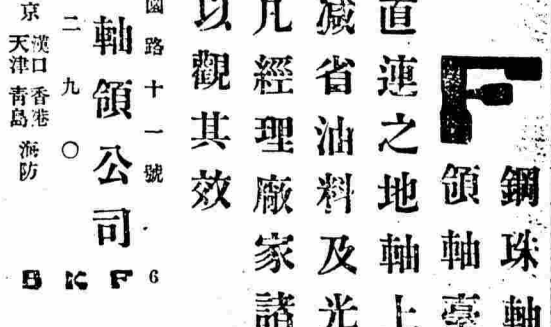 鋼珠軸
領軸臺
直連之地軸上
減省油料及光
凡經理廠家諸
以觀其效
國路十一號 6
軸領公司
二九〇
京 漢口 香港
天津 青島 海防
SKF